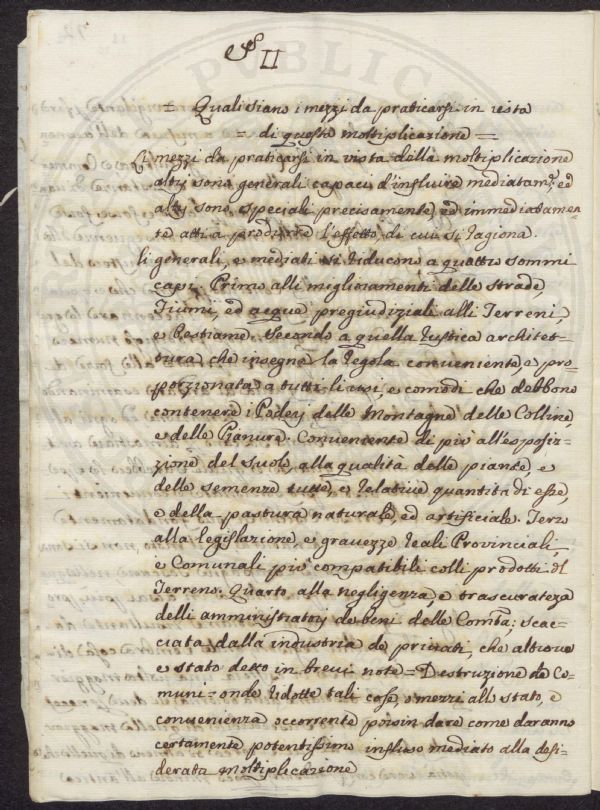 § II
= Quali siano i mezzi da praticarsi in vista
= di questa moltiplicazione =
Li mezzi da praticarsi in vista dalla moltiplicazione
altri sono generali capaci d'influire mediatam.e ed
altri sono speciali precisamente, ed immediatamen-
te atti a produrre l'effetto, di cui si ragiona.
li generali, e mediati si riducono a quattro sommi
capi. Primo alli miglioramenti delle strade,
Fiumi, ed acque pregiudiziali alli Terreni,
e Bestiame. Secondo a quella rustica architet-
tura che insegna la regola conveniente, e pro-
porzionata a tutti li usi, e comodi che debbono
contenere i Poderj delle Montagne delle Colline,
e delle Pianure. Conveniente di più all'esposiz-
zione del suolo, alla qualità delle piante, e
delle semenze tutte, e relative quantità di esse,
e della pastura naturale, ed artificiale. Terzo
alla legislazione, e gravezze reali Provinciali,
e Comunali più compatibili colli prodotti del
Terreno. Quarto alla negligenza, e trascuratezza
delli amministratorj de beni delle Comtà; scac-
ciata dalla industria de privati, che altrove
e stato detto in brevi note = Destruzione de Co-
muni = onde ridotte tali cose, o mezzi allo stato, e
convenienza occorrente possin dare come daranno
certamente potentissimo influso mediato alla desi-
derata moltiplicazione